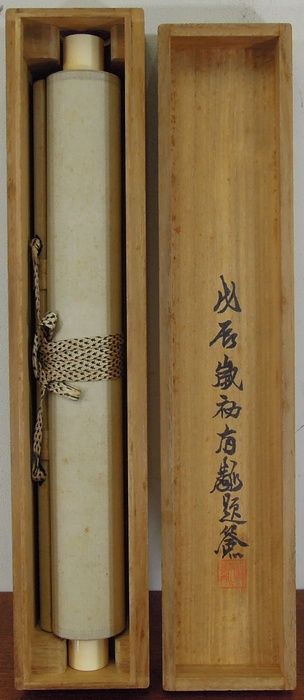 戊辰歳初有鄰題簽